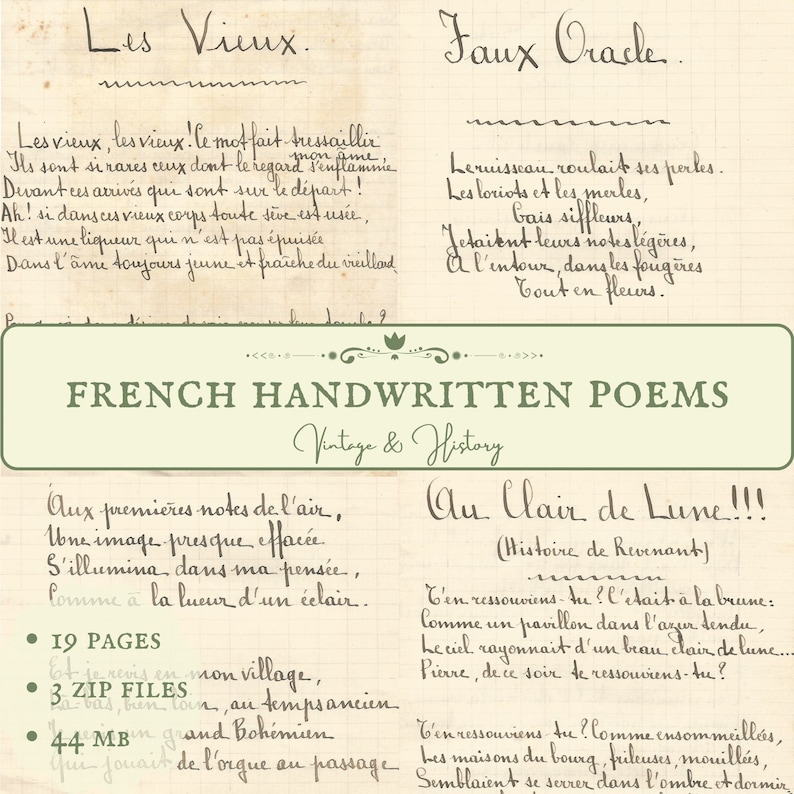 Les Vieux.
Les vieux, les vieux! Ce mot fait tressaillir
mon âme
Ils sont si rares ceux dont le regard s'enflamme
Devant ces arrivés qui sont sur le départ!
Ah! si dans ces vieux corps toute sève est usée,
Il est une liqueur qui n'est pas épuisée
Dans l'âme toujours jeune et fraîche du vieillard
Faux Oracle.
Le ruisseau roulait ses perles.
Les loriots et les merles,
Gais siffleurs,
Jetaient leurs notes légères,
A l'entour, dans les fougères
Tout en fleurs.
FRENCH HANDWRITTEN POEMS
Vintage & History
Aux premières notes de l'air,
Une image presque effacée
S'illumina dans ma pensée,
Comme à la lueur d'un éclair.
Et je revis en mon village,
Là-bas, bien loin, au temps ancien
grand Bohémien
Qui jouait de l'orgue au passage
• 19 PAGES
• 3 ZIP FILES
• 44 MB
Au Clair de Lune!!!
(Histoire de Revenant)
T'en ressouviens-tu? C'était à la brune:
Comme un pavillon dans l'azur tendu,
Le ciel rayonnait d'un beau clair de lune...
Pierre, de ce soir te ressouviens-tu?
T'en ressouviens-tu? Comme ensommeillées,
Les maisons du bourg, frileuses, mouillées,
Semblaient se serrer dans l'ombre et dormir